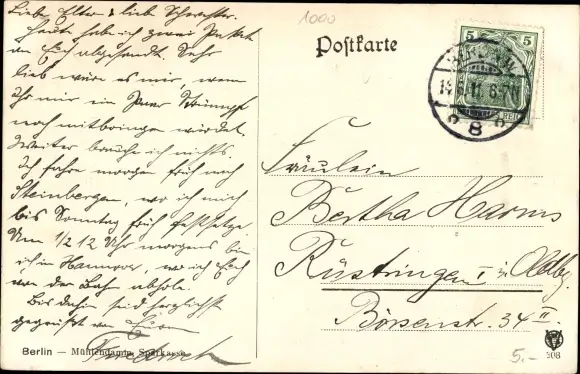 Liebe Eltern & lieb Schwester.
Heute habe ich zwei Pakete
an Euch abgesandt. Sehr
lieb wäre es mir, wenn
Ihr mir ein Paar Strümpfe
noch mitbringen würdet.
Weiter brauche ich nichts.
Ich fahre morgen früh nach
Steinbergen, wo ich mich
bis Sonntag früh festsetze.
Um 1/2 12 Uhr morgens bin
ich in Hannover, wo ich Euch
von der Bahn abhole.
Bis dahin seid herzlichst
gegrüßt von Eurem
Friedrich
Berlin — Mühlendamm, Sparkasse
1000
Postkarte
5 5
BERLIN
8
Fräulein
Bertha Harms
Rüstringen i. Oldbg.
Börsenstr. 34 II
5.-
308